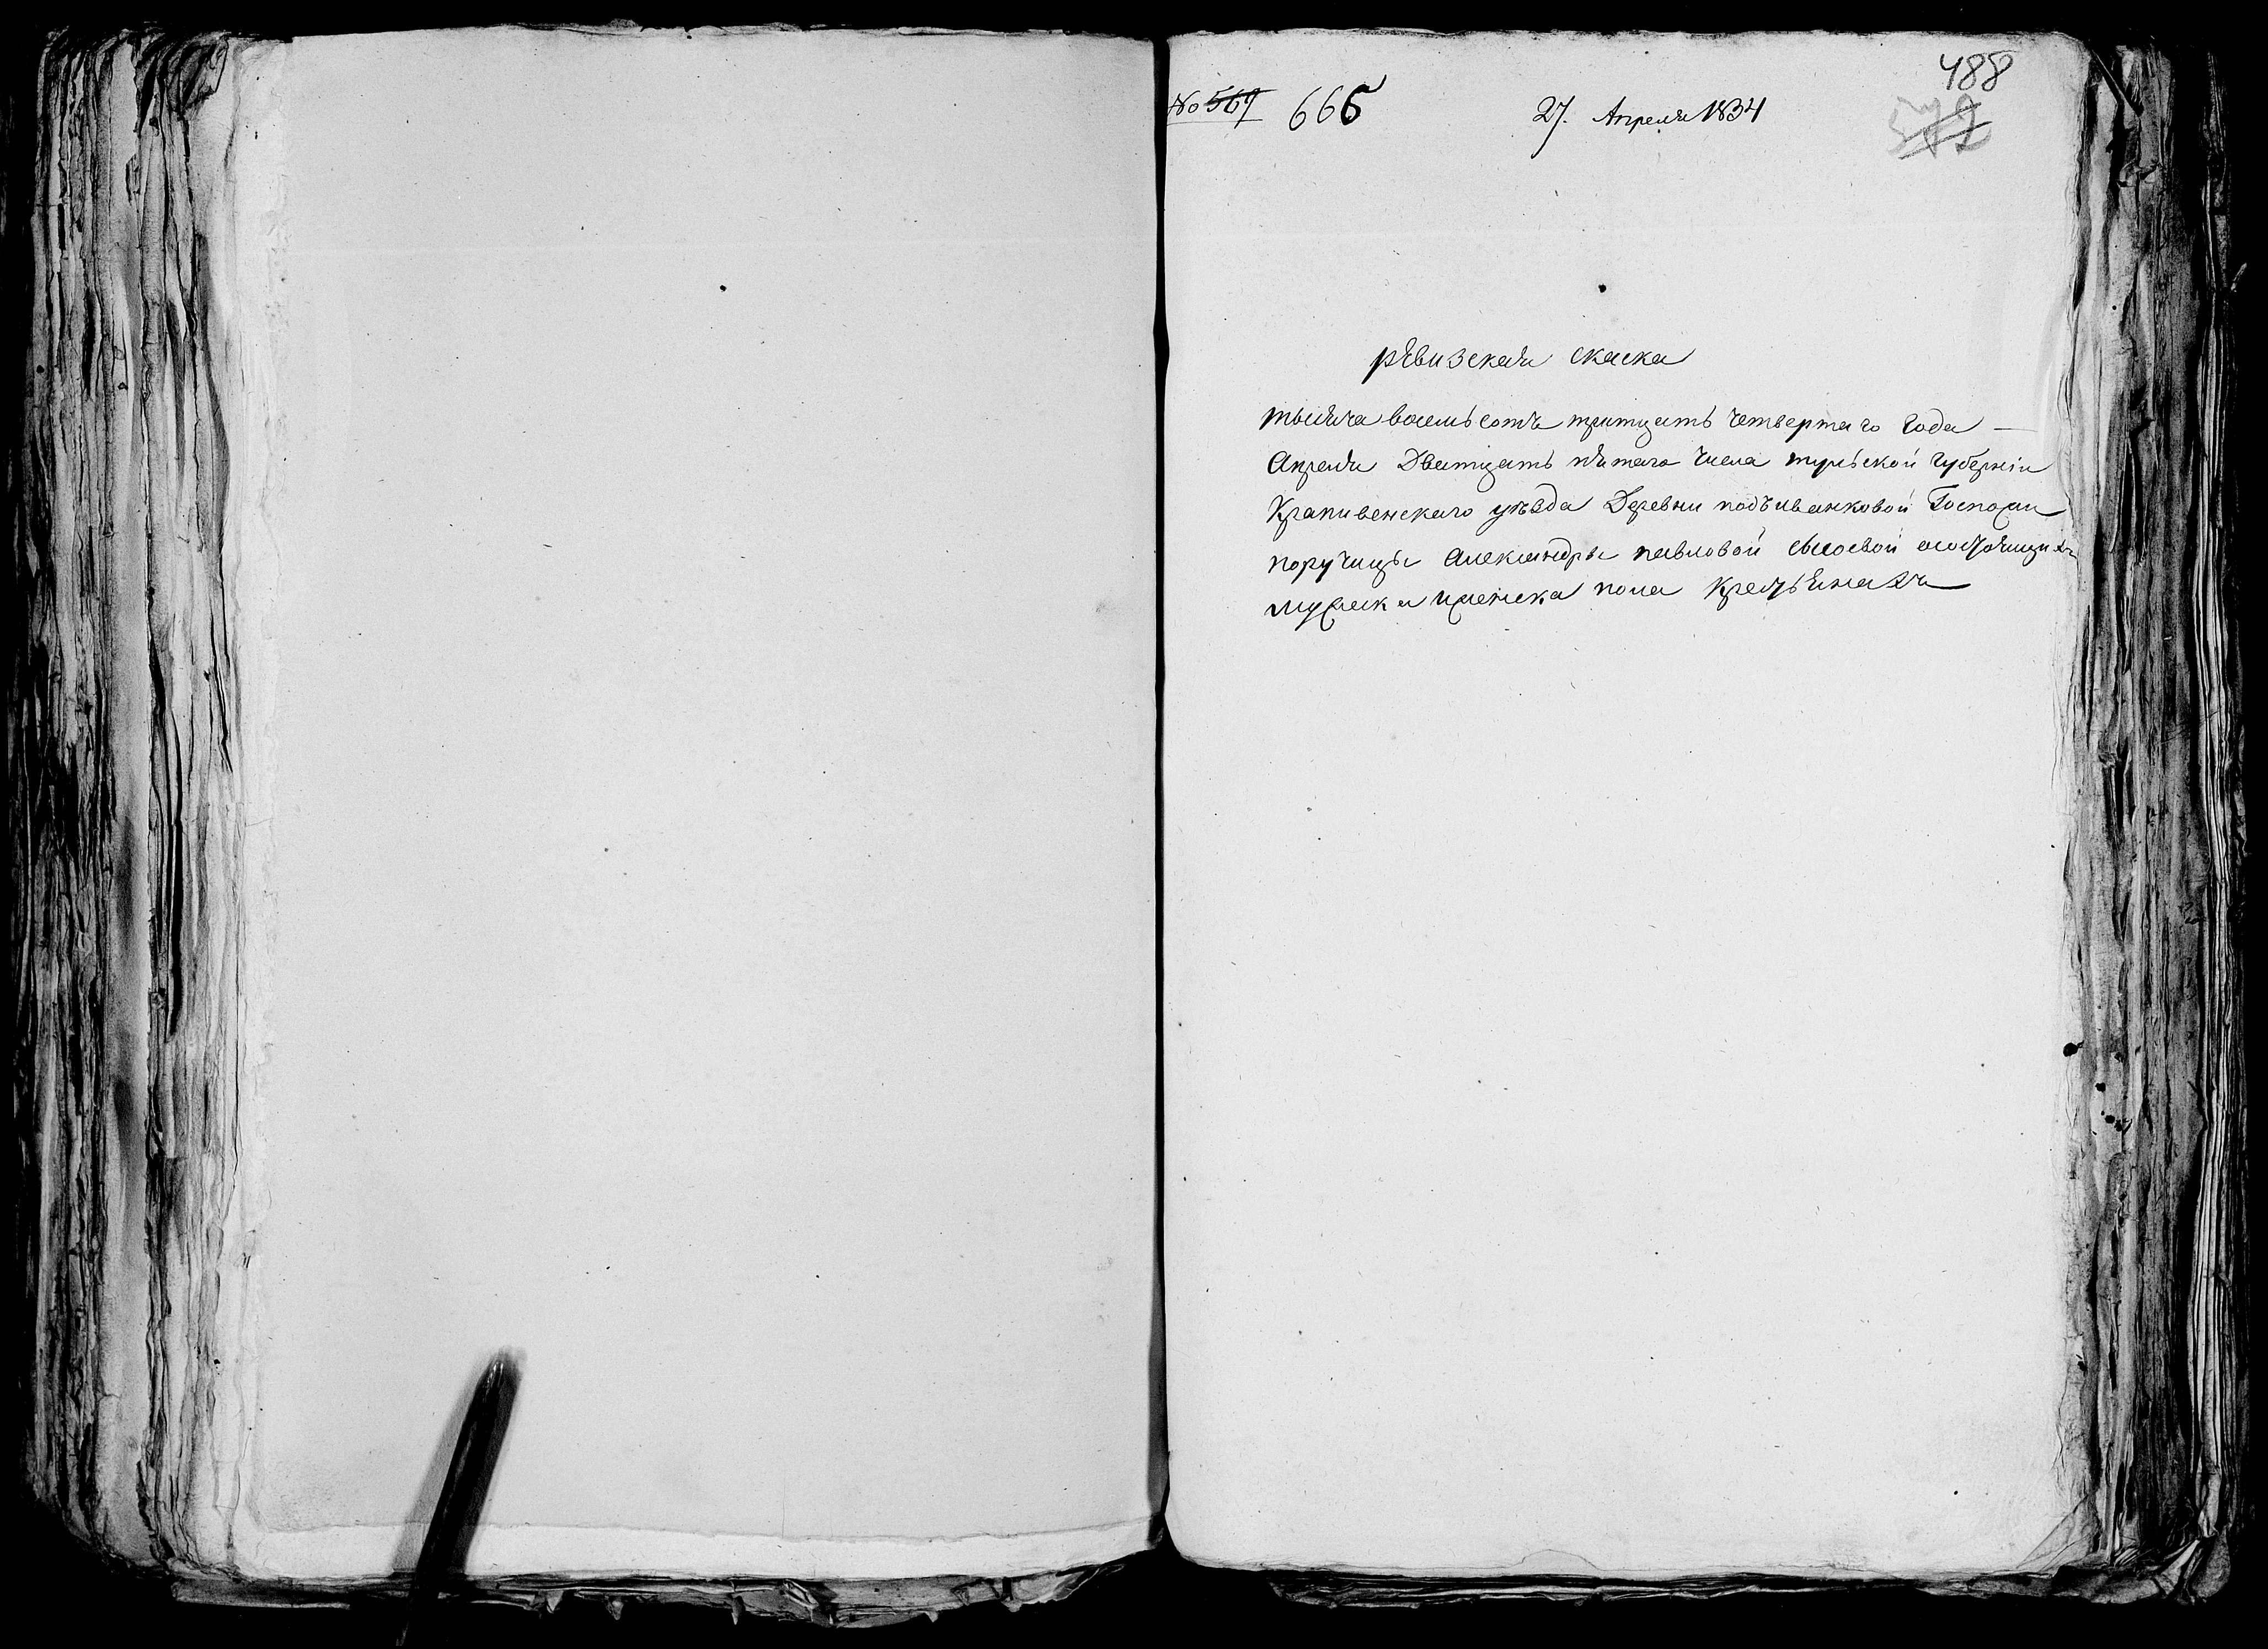 488
№ 569 666 27. Апреля 1834
572
рѣвизская скаска
тысяча восемьсотъ тритцать четвертаго года —
Апреля Дватцать пятаго числа тульской губерніи
Крапивенскаго уѣзда Деревни подъиванковой Госпожи
поручицы Александры павловой состоящихъ
мужска иженска пола Крестьянахъ